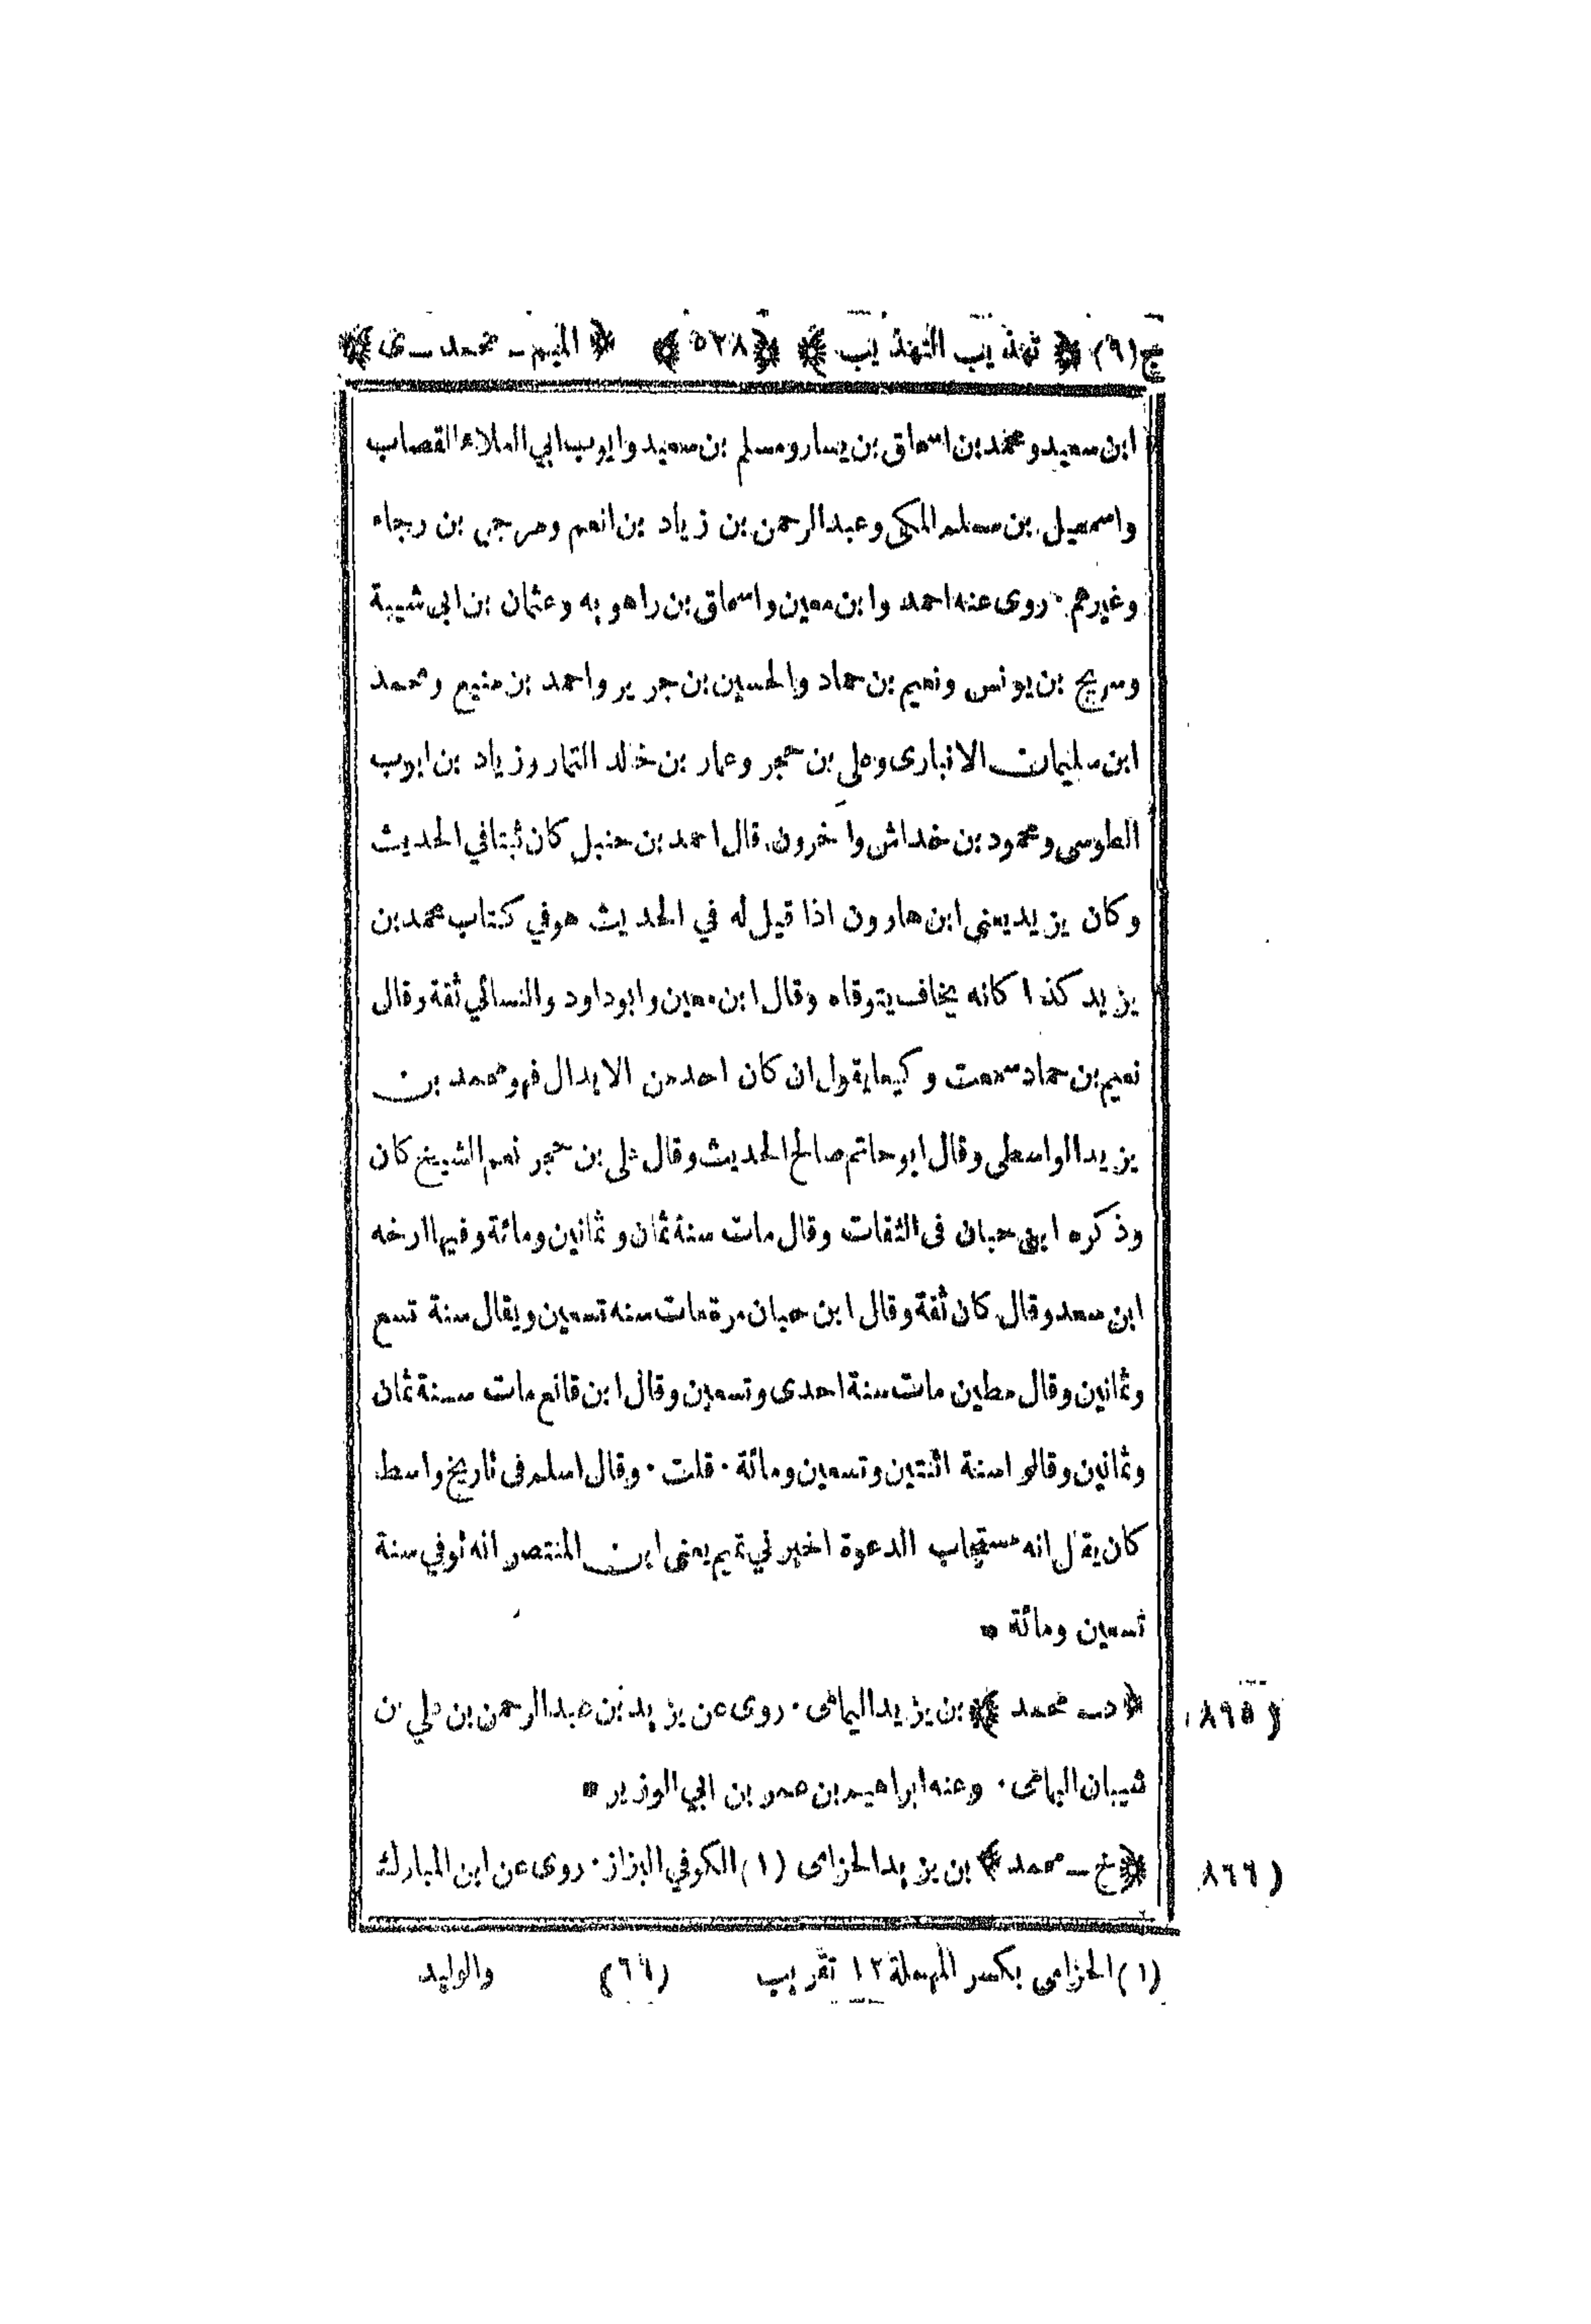 ج(٩) ﴿ تهذيب التهذيب ﴾ ﴿ ٥٢٨ ﴾ ﴿ الميم ـ محمد ـ ى ﴾
ابن سعيد ومحمد بن اسحاق بن يسار ومسلم بن سعيد وايوب ابي العلاء القصاب
واسمعيل بن مسلم المكى وعبد الرحمن بن زياد بن انعم ومرجى بن رجاء
وغيرهم . روى عنه احمد وابن معين واسحاق بن راهويه وعثمان بن ابى شيبة
وسريج بن يونس ونعيم بن حماد والحسين بن جرير واحمد بن منيع ومحمد
ابن سليمان الانبارى وعلي بن حجر وعمار بن خالد التمار وزياد بن ايوب
الطوسى ومحمود بن خداش واخرون . قال احمد بن حنبل كان ثبتا في الحديث
وكان يزيد يعنى ابن هارون اذا قيل له في الحديث هو في كتاب محمد بن
يزيد كذا كانه يخاف يتوقاه وقال ابن معين وابوداود والنسائي ثقة وقال
نعيم بن حماد سمعت وكيعا يقول ان كان احد من الابدال فهو محمد بن
يزيد الواسطى وقال ابو حاتم صالح الحديث وقال علي بن حجر نعم الشيخ كان
وذكره ابن حبان فى الثقات وقال مات سنة ثمان وثمانين ومائة وفيها ارخه
ابن سعد وقال كان ثقة وقال ابن حبان مرة مات سنه تسعين ويقال سنة تسع
وثمانين وقال مطين مات سنة احدى وتسعين وقال ابن قانع مات سنة ثمان
وثمانين وقالوا سنة اثنتين وتسعين ومائة . قلت . وقال اسلم فى تاريخ واسط
كان يقال انه مستجاب الدعوة اخبرني تميم يعنى ابن المنتصر انه توفي سنة
تسعين ومائة *
(٨٦٥) ﴿ د ـ محمد ﴾ بن يزيد اليمامى . روى عن يزيد بن عبد الرحمن بن علي بن
شيبان اليمامى . وعنه ابراهيم بن عمر بن ابي الوزير *
(٨٦٦) ﴿ خ ـ محمد ﴾ بن يزيد الحزامى (١) الكوفي البزاز . روى عن ابن المبارك
(١) الحزامى بكسر المهملة ١٢ تقريب (٦٦) والوليد